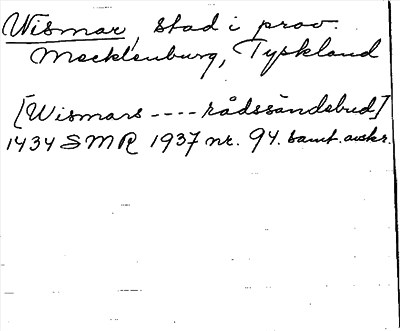 Wismar, stad i prov.
Mecklenburg, Tyskland
[Wismars ---- rådssändebud]
1434 SMR 1937 nr. 94. samt. avskr.